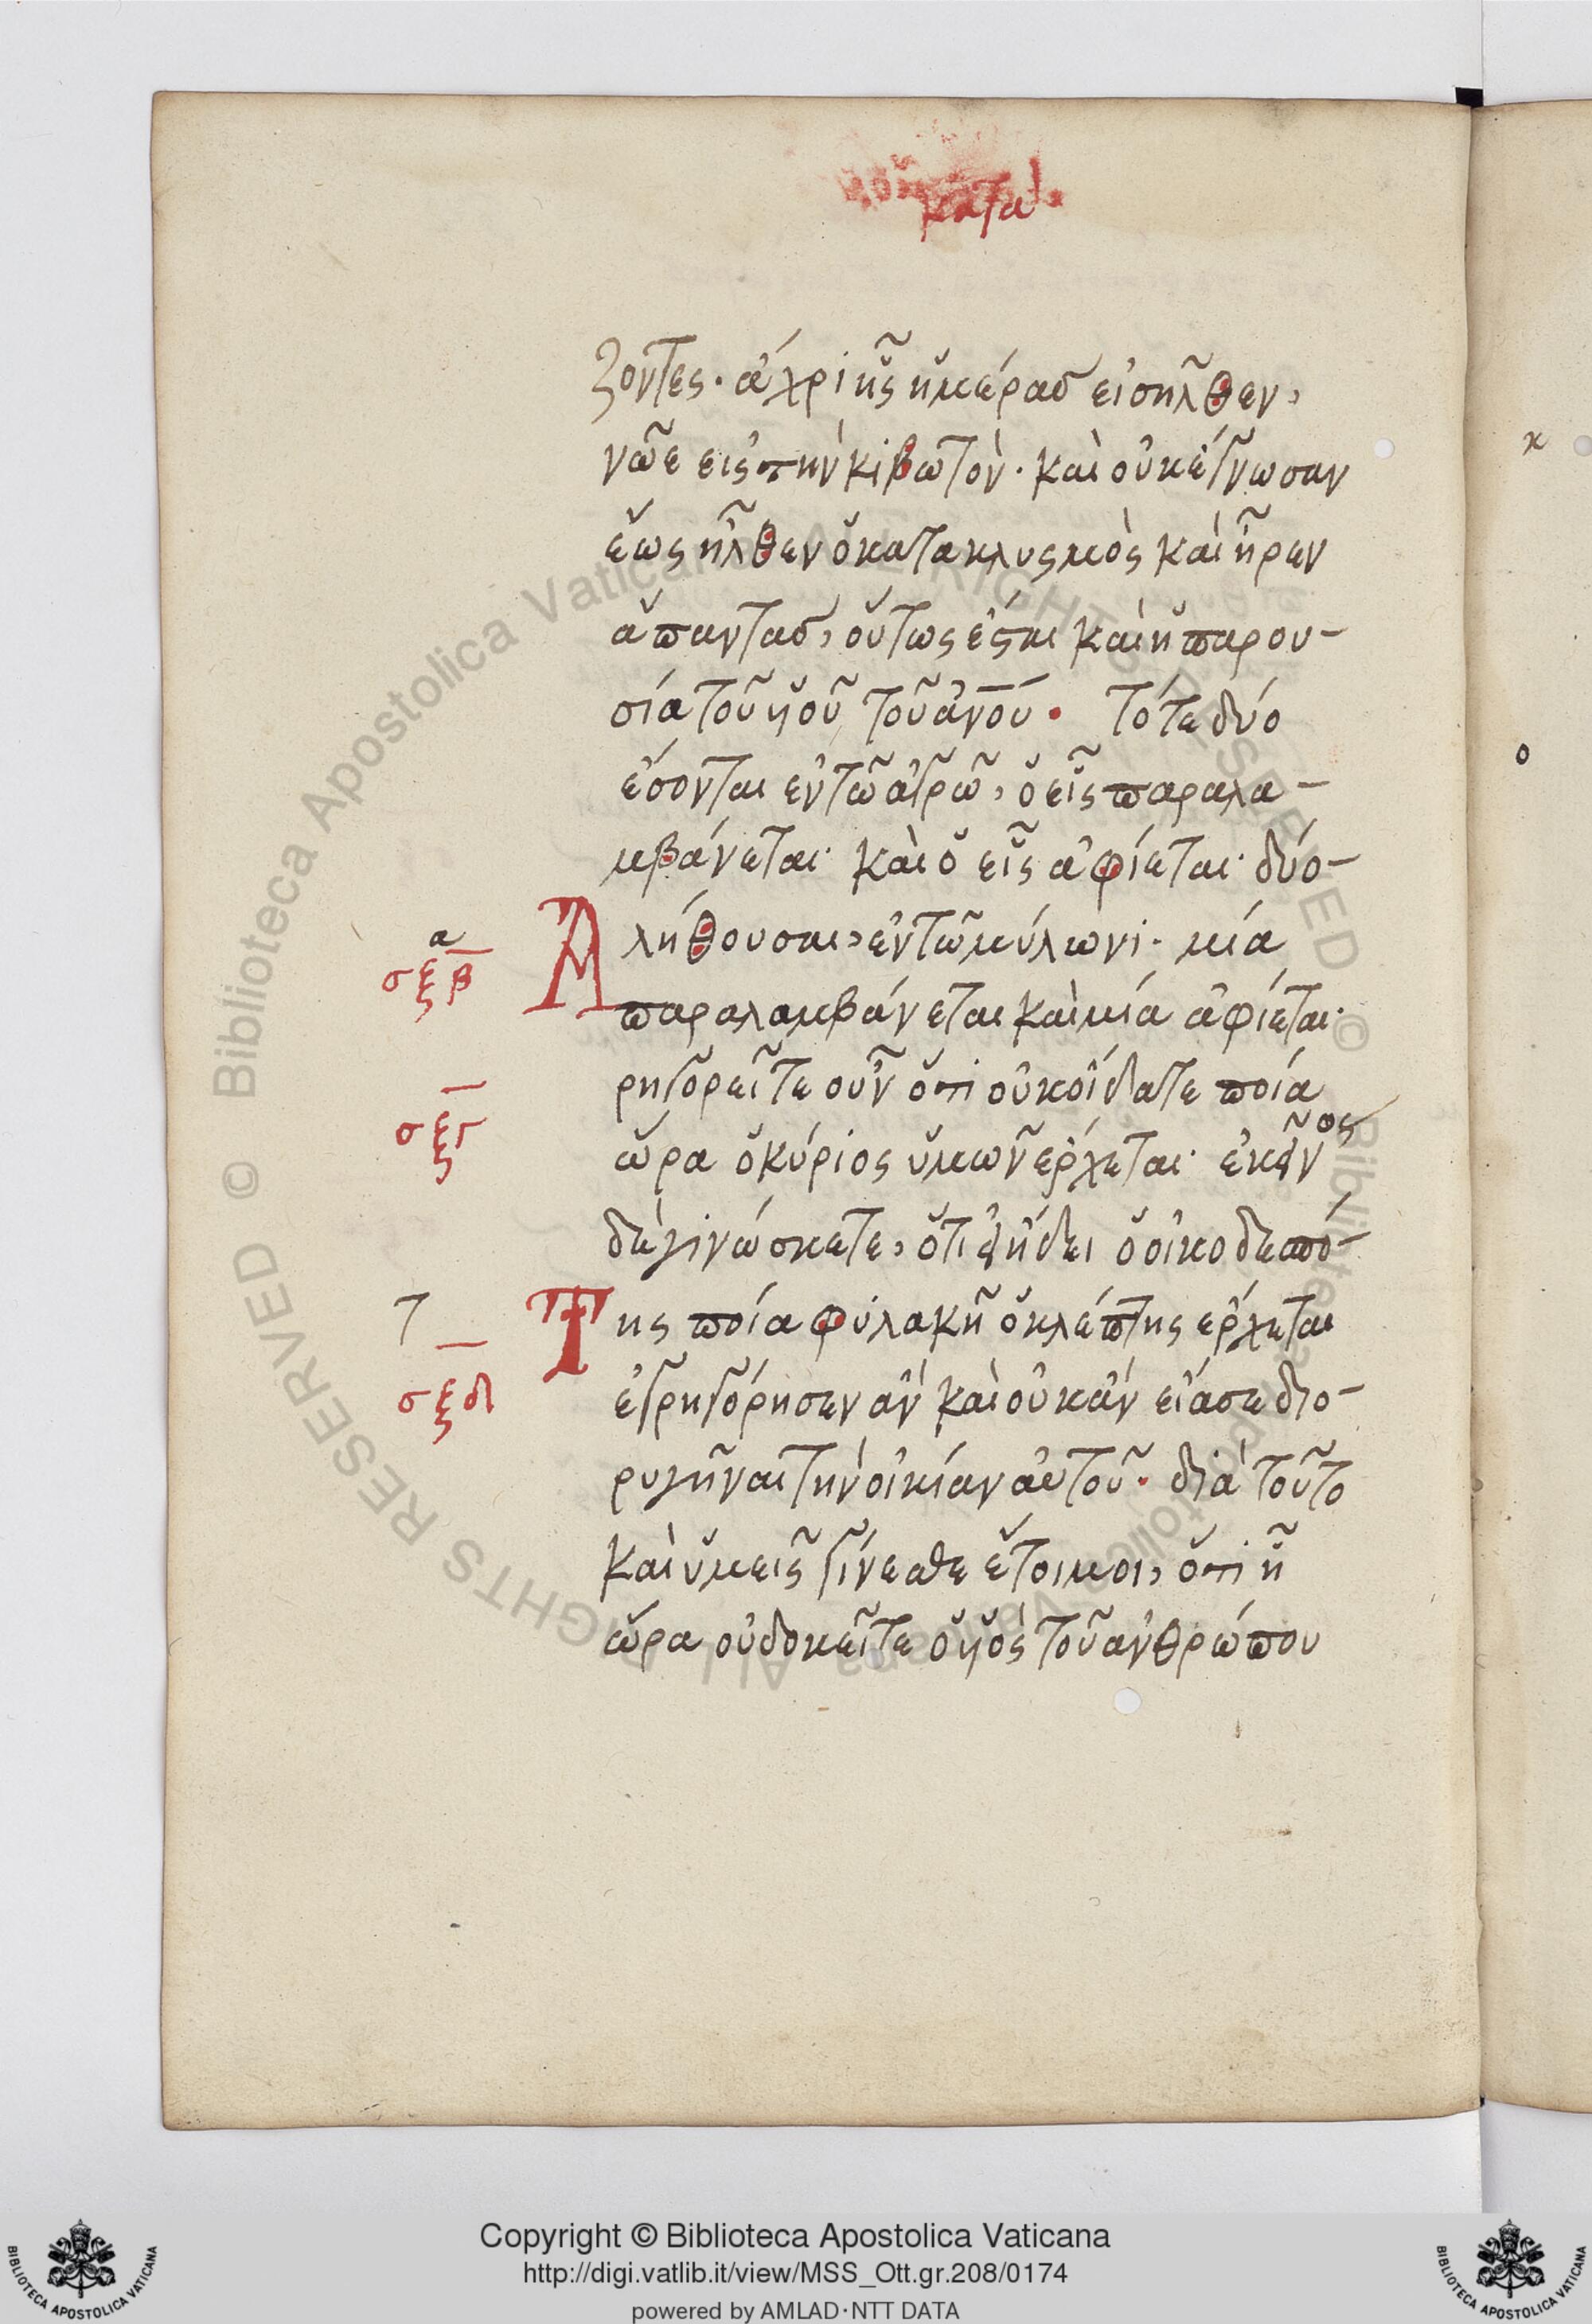 κατα
ζοντες· ἄχρι ἧς ἡμέρας εἰσῆλθεν,
νῶε εἰς τὴν κιβωτὸν· καὶ οὐκ ἔγνωσαν
ἕως ἦλθεν ὁ κατακλυσμὸς καὶ ἦρεν
ἅπαντας, οὕτως ἔσται καὶ ἡ παρου-
σία τοῦ υἱοῦ τοῦ ἀνου· Τότε δύο
ἔσονται ἐν τῶ ἀγρῶ, ὁ εἷς παραλα-
μβάνεται· καὶ ὁ εἷς ἀφίεται· δύο-
α
σξβ
Α λήθουσαι, ἐν τῶ μύλωνι· μία
παραλαμβάνεται καὶ μία ἀφίεται·
σξγ
γρηγορεῖτε οὖν ὅτι οὐκ οἴδατε ποία
ὥρα ὁ κύριος ὑμῶν ἔρχεται· ἐκεῖνος
δὲ γινώσκετε, ὅτι εἰ ἤδει ὁ οἰκοδεσπό-
τ
σξδ
Της ποία φυλακῆ ὁ κλέπτης ἔρχεται
ἐγρηγόρησεν ἂν καὶ οὐκ ἂν εἴασε διο-
ρυγῆναι τὴν οἰκίαν αὐτοῦ· διὰ τοῦτο
καὶ ὑμεῖς γίνεσθε ἕτοιμοι, ὅτι ἧ
ὥρα οὐ δοκεῖτε ὁ υἱὸς τοῦ ἀνθρώπου
κ
ο
Biblioteca Apostolica Vaticana ALL RIGHTS RESERVED ©
Copyright © Biblioteca Apostolica Vaticana
http://digi.vatlib.it/view/MSS_Ott.gr.208/0174
powered by AMLAD·NTT DATA
BIBLIOTECA APOSTOLICA VATICANA
BIBLIOTECA APOSTOLICA VATICANA